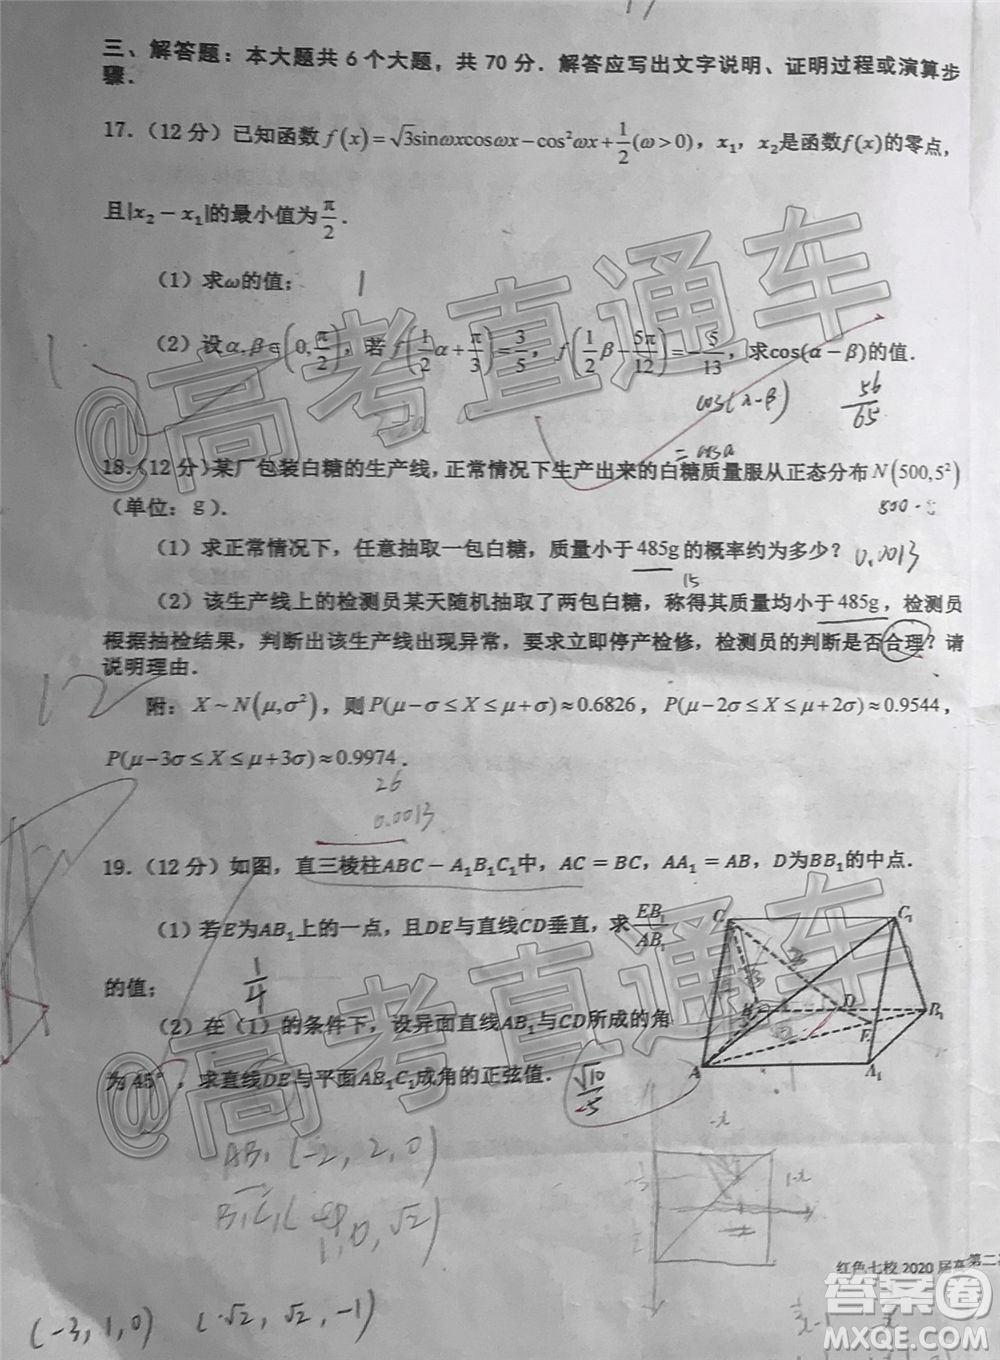 三、解答题：本大题共 6 个大题，共 70 分．解答应写出文字说明、证明过程或演算步
骤．
17．（12 分）已知函数 f(x)=√3sinωxcosωx−cos²ωx+1/2(ω>0)，x₁，x₂是函数f(x)的零点，
且|x₂−x₁|的最小值为π/2．
（1）求ω的值； 1
（2）设α,β∈(0,π/2)，若 f(1/2 α+π/3)=3/5，f(1/2 β−5π/12)=−5/13，求cos(α−β)的值．
cos(α-β) 56/65
18．（12 分）某厂包装白糖的生产线，正常情况下生产出来的白糖质量服从正态分布 N(500,5²)
（单位：g）．
（1）求正常情况下，任意抽取一包白糖，质量小于 485g 的概率约为多少？ 0.0013
15
（2）该生产线上的检测员某天随机抽取了两包白糖，称得其质量均小于 485g，检测员
根据抽检结果，判断出该生产线出现异常，要求立即停产检修，检测员的判断是否合理？请
说明理由．
12
附：X~N(μ,σ²)，则 P(μ−σ≤X≤μ+σ)≈0.6826，P(μ−2σ≤X≤μ+2σ)≈0.9544，
P(μ−3σ≤X≤μ+3σ)≈0.9974．
26
0.0013
19．（12 分）如图，直三棱柱ABC−A₁B₁C₁中，AC=BC，AA₁=AB，D为BB₁的中点．
（1）若E为AB₁上的一点，且DE与直线CD垂直，求 EB₁/AB₁
的值； 1/4
（2）在（1）的条件下，设异面直线AB₁与CD所成的角
为 45°，求直线DE与平面AB₁C₁成角的正弦值． √10/5
C C₁
B D B₁
E
A A₁
AB₁ (-2, 2, 0)
(-3, 1, 0) (-√2, √2, -1)
红色七校 2020 届高 第二
@高考直通车
@高考直通车
答案圈
MXQE.COM